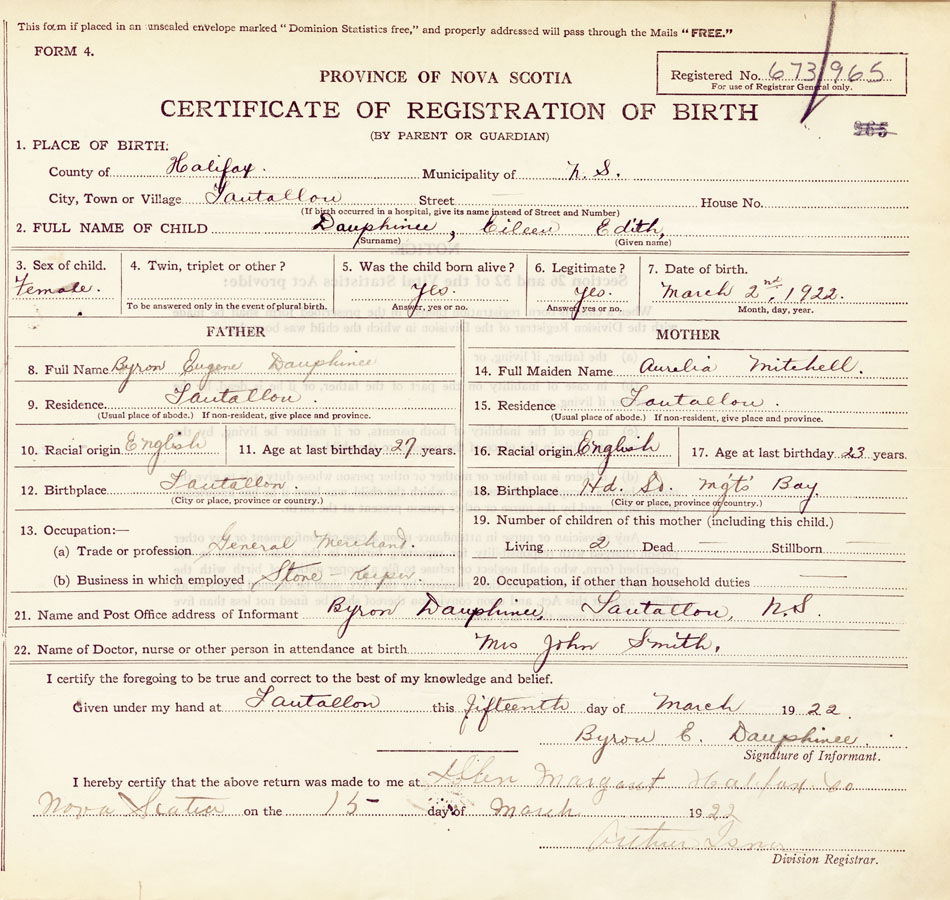 This form if placed in an unsealed envelope marked "Dominion Statistics free," and properly addressed will pass through the Mails "FREE."
FORM 4.
Registered No. 673965
For use of Registrar General only.
PROVINCE OF NOVA SCOTIA
CERTIFICATE OF REGISTRATION OF BIRTH
965
(BY PARENT OR GUARDIAN)
1. PLACE OF BIRTH:
County of Halifax. Municipality of N. S.
City, Town or Village Tantallon Street — House No.
(If birth occurred in a hospital, give its name instead of Street and Number)
2. FULL NAME OF CHILD Dauphinee, Eileen Edith,
(Surname) (Given name)
3. Sex of child. 4. Twin, triplet or other? 5. Was the child born alive? 6. Legitimate? 7. Date of birth.
Female. yes. yes. March 2nd, 1922.
To be answered only in the event of plural birth. Answer, yes or no. Answer, yes or no. Month, day, year.
FATHER MOTHER
8. Full Name Byron Eugene Dauphinee 14. Full Maiden Name Aurelia Mitchell.
9. Residence Tantallon. 15. Residence Tantallon.
(Usual place of abode.) If non-resident, give place and province. (Usual place of abode.) If non-resident, give place and province.
10. Racial origin English 11. Age at last birthday 27 years. 16. Racial origin English 17. Age at last birthday 23 years.
12. Birthplace Tantallon. 18. Birthplace Hd. St. Mgt's Bay.
(City or place, province or country.) (City or place, province or country.)
13. Occupation:— 19. Number of children of this mother (including this child.)
(a) Trade or profession General Merchant. Living 2 Dead — Stillborn —
(b) Business in which employed Store-Keeper. 20. Occupation, if other than household duties —
21. Name and Post Office address of Informant Byron Dauphinee, Tantallon, N.S.
22. Name of Doctor, nurse or other person in attendance at birth Mrs John Smith.
I certify the foregoing to be true and correct to the best of my knowledge and belief.
Given under my hand at Tantallon this fifteenth day of March 1922.
Byron E. Dauphinee.
Signature of Informant.
I hereby certify that the above return was made to me at Glen Margaret Halifax Co
Nova Scotia on the 15 day of March 1922
Arthur
Division Registrar.